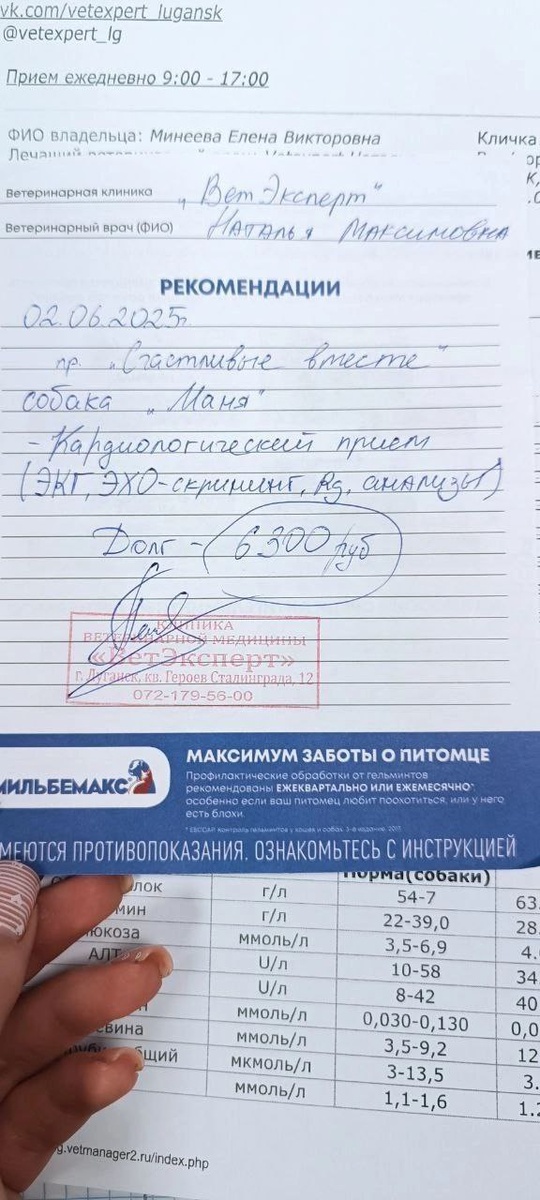 vk.com/vetexpert_lugansk
@vetexpert_lg
Прием ежедневно 9:00 - 17:00
ФИО владельца: Минеева Елена Викторовна
Кличка
Ветеринарная клиника „ВетЭксперт"
Ветеринарный врач (ФИО) Наталья Максимовна
РЕКОМЕНДАЦИИ
02.06.2025г.
пр. „Счастливые вместе"
собака „Маня"
- Кардиологический прием
(ЭКГ, ЭХО-скрининг, Rg, анализы)
Долг - 6300 руб
КЛИНИКА
ВЕТЕРИНАРНОЙ МЕДИЦИНЫ
«ВетЭксперт»
г. Луганск, кв. Героев Сталинграда, 12
072-179-56-00
МИЛЬБЕМАКС
МАКСИМУМ ЗАБОТЫ О ПИТОМЦЕ
Профилактические обработки от гельминтов
рекомендованы ЕЖЕКВАРТАЛЬНО ИЛИ ЕЖЕМЕСЯЧНО*
особенно если ваш питомец любит поохотиться, или у него
есть блохи.
МЕЮТСЯ ПРОТИВОПОКАЗАНИЯ. ОЗНАКОМЬТЕСЬ С ИНСТРУКЦИЕЙ
Норма(собаки)
лок г/л 54-7 63.
мин г/л 22-39,0 28.
юкоза ммоль/л 3,5-6,9 4.
АЛТ U/л 10-58 34
U/л 8-42 40
ммоль/л 0,030-0,130 0,0
евина ммоль/л 3,5-9,2 12
общий мкмоль/л 3-13,5 3.
ммоль/л 1,1-1,6 1.2
g.vetmanager2.ru/index.php